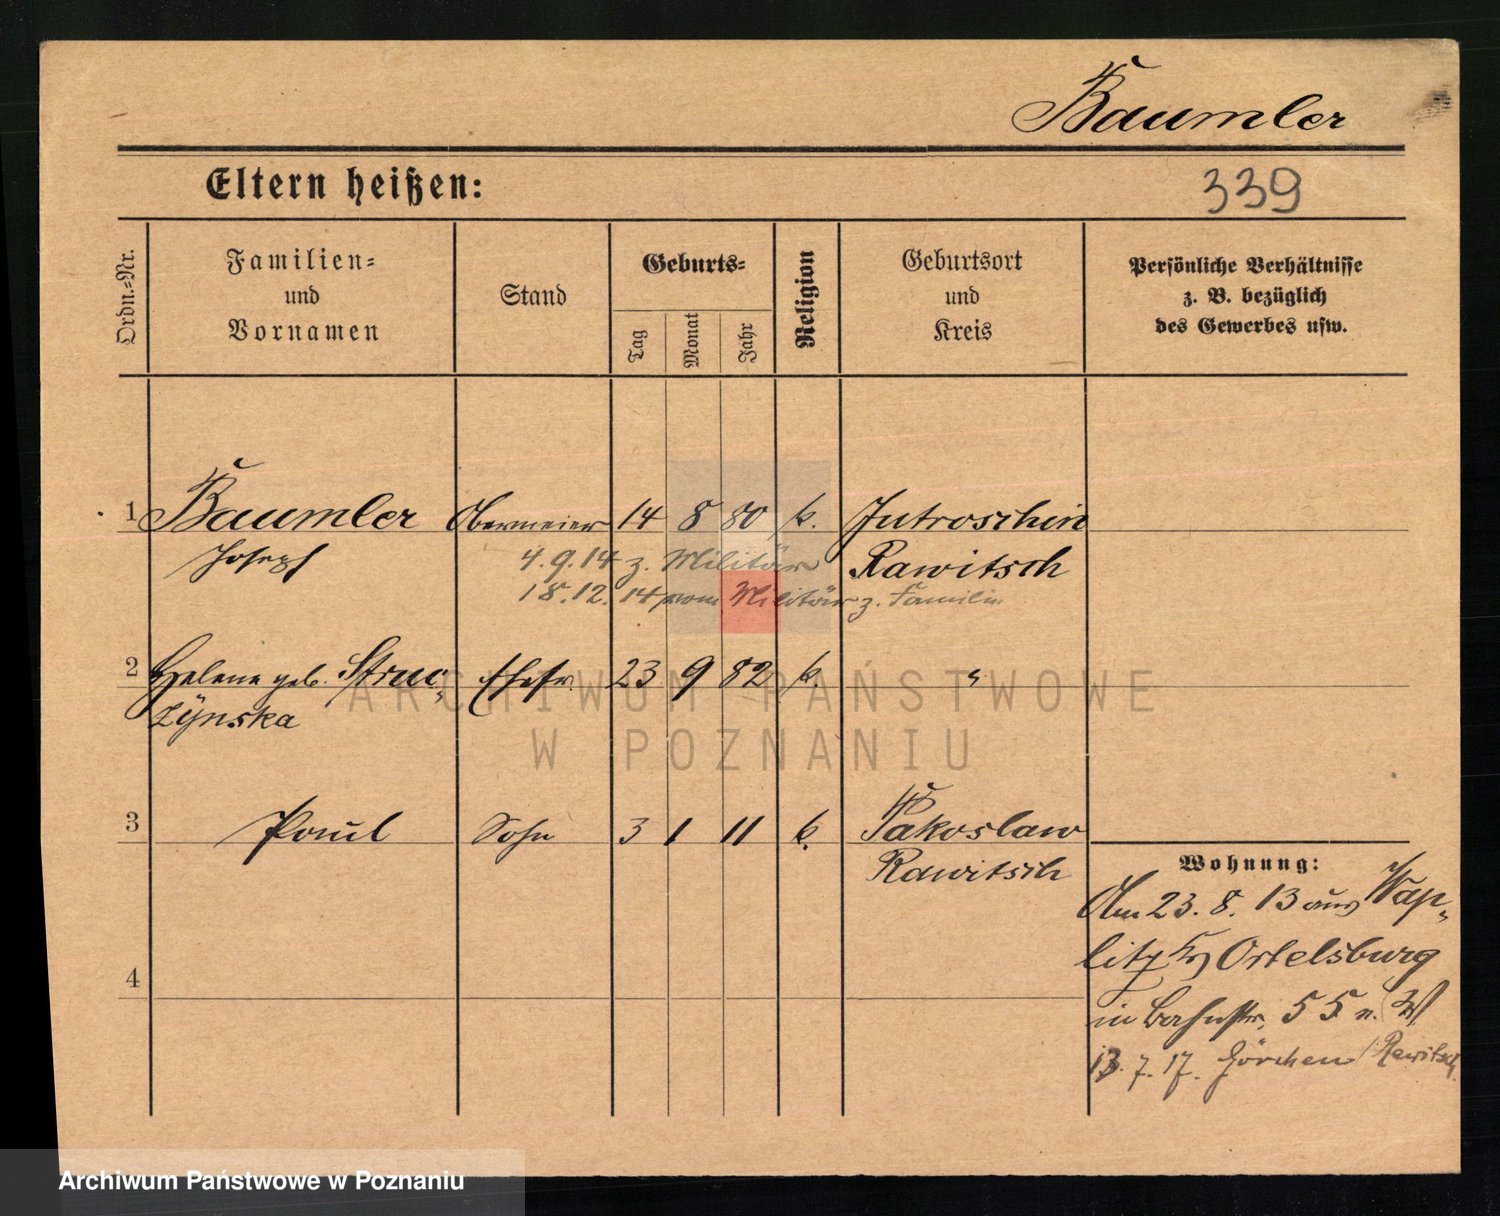 Baumler
Eltern heißen:
339
Ordn.-Nr.
Familien-
und
Vornamen
Stand
Geburts-
Tag
Monat
Jahr
Religion
Geburtsort
und
Kreis
Persönliche Verhältnisse
z. B. bezüglich
des Gewerbes usw.
1 Baumler Obermeier 14 8 80 k. Jutroschin
Joseph 4.9.14 z. Militär Rawitsch
18.12.14 vom Militär z. Familie
2 Helene geb. Struc- Ehefr. 23 9 82 k. "
zÿnska
3 Paul Sohn 3 1 11 k. Jakoslaw
Rawitsch
4
Wohnung:
Am 23.8.13 aus Wap-
litz Kr Ortelsburg
in Bahnstr. 55 n. W
13.7.17. Görchen Rawitsch
ARCHIWUM PAŃSTWOWE
W POZNANIU
Archiwum Państwowe w Poznaniu